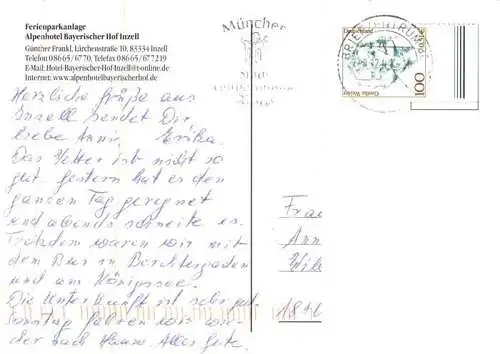 Ferienparkanlage
Alpenhotel Bayerischer Hof Inzell
Günther Frankl, Lärchenstraße 10, 83334 Inzell
Telefon 08665/6770, Telefax 08665/677219
E-Mail: Hotel-Bayerischer-Hof-Inzell@t-online.de
Internet: www.alpenhotelbayerischerhof.de
München
BRIEFZENTRUM
Deutschland
100
Herzliche Grüße aus
Inzell sendet Dir
liebe Anni Erika.
Das Wetter ist nicht so
gut gestern hat es den
ganzen Tag geregnet
und abends schneite es.
Trotzdem waren wir mit
dem Bus in Berchtesgaden
und am Königssee.
Die Unterkunft ist sehr gut.
Sonntag fahren wir wie-
der nach Hause. Alles Gute.
Frau
Ann